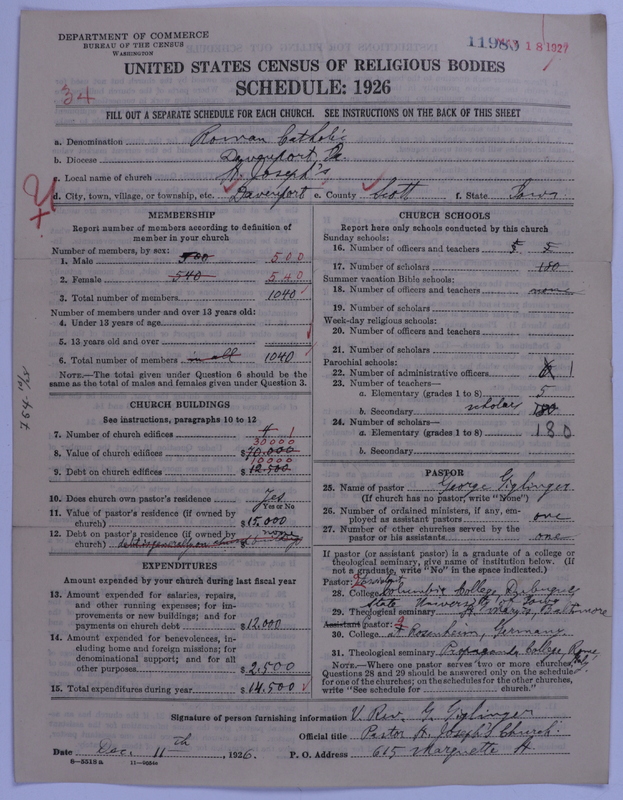 DEPARTMENT OF COMMERCE
BUREAU OF THE CENSUS
WASHINGTON
11983 18 1927
UNITED STATES CENSUS OF RELIGIOUS BODIES
SCHEDULE: 1926
34
FILL OUT A SEPARATE SCHEDULE FOR EACH CHURCH. SEE INSTRUCTIONS ON THE BACK OF THIS SHEET
a. Denomination Roman Catholic
b. Diocese Davenport, Ia.
c. Local name of church St. Joseph's
d. City, town, village, or township, etc. Davenport e. County Scott f. State Iowa
MEMBERSHIP
Report number of members according to definition of
member in your church
Number of members, by sex:
1. Male 500 500
2. Female 540 540
3. Total number of members 1040
Number of members under and over 13 years old:
4. Under 13 years of age
5. 13 years old and over
6. Total number of members in all 1040
NOTE.—The total given under Question 6 should be the
same as the total of males and females given under Question 3.
CHURCH BUILDINGS
See instructions, paragraphs 10 to 12
7. Number of church edifices 1
8. Value of church edifices $70.000 30000
9. Debt on church edifices $12.500 10000
10. Does church own pastor's residence Yes
Yes or No
11. Value of pastor's residence (if owned by
church) $15.000
12. Debt on pastor's residence (if owned by
church) none
EXPENDITURES
Amount expended by your church during last fiscal year
13. Amount expended for salaries, repairs,
and other running expenses; for im-
provements or new buildings; and for
payments on church debt $12.000
14. Amount expended for benevolences, in-
cluding home and foreign missions; for
denominational support; and for all
other purposes $2.500
15. Total expenditures during year $14.500
CHURCH SCHOOLS
Report here only schools conducted by this church
Sunday schools:
16. Number of officers and teachers 5 5
17. Number of scholars 180
Summer vacation Bible schools:
18. Number of officers and teachers none
19. Number of scholars
Week-day religious schools:
20. Number of officers and teachers
21. Number of scholars
Parochial schools:
22. Number of administrative officers 1
23. Number of teachers—
a. Elementary (grades 1 to 8) 5
b. Secondary scholar 180
24. Number of scholars—
a. Elementary (grades 1 to 8) 180
b. Secondary
PASTOR
25. Name of pastor George Giglinger
(If church has no pastor, write "None")
26. Number of ordained ministers, if any, em-
ployed as assistant pastors one
27. Number of other churches served by the
pastor or his assistants one
If pastor (or assistant pastor) is a graduate of a college or
theological seminary, give name of institution below. (If
not a graduate, write "No" in the space indicated.)
Pastor: Assistant
28. College Columbia College, Dubuque
State University of Iowa
29. Theological seminary St. Marys, Baltimore
Assistant pastor:
30. College at Rosenheim, Germany
31. Theological seminary Propaganda College, Rome, Italy
NOTE.—Where one pastor serves two or more churches,
Questions 28 and 29 should be answered only on the schedule
for one of the churches; on the schedules for the other churches,
write "See schedule for church."
Signature of person furnishing information V. Rev. G. Giglinger
Official title Pastor St. Joseph's Church.
Date Dec. 11th, 1926. P. O. Address 615 Marquette St.
8—5518a